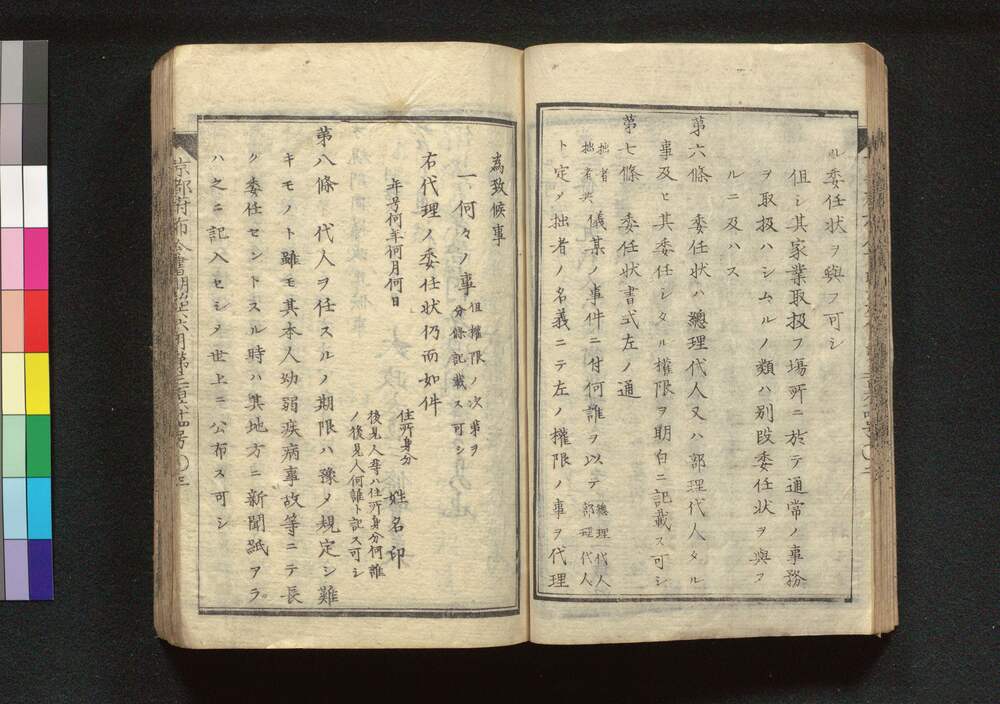 ル委任状ヲ與フ可シ
但シ其家業取扱フ場所ニ於テ通常ノ事務
ヲ取扱ハシムルノ類ハ別段委任状ヲ與フ
ルニ及ハス
第六條　委任状ハ總理代人又ハ部理代人タル
事及ヒ其委任シタル權限ヲ明白ニ記載ス可シ
第七條　委任状書式左ノ通
拙者
拙者共
儀某ノ事件ニ付何誰ヲ以テ
總理代人
部理代人
ト定メ拙者ノ名義ニテ左ノ權限ノ事ヲ代理
為致候事
一何々ノ事
但權限ノ次第ヲ
分條記載ス可シ
右代理ノ委任状仍而如件
年号何年何月何日
住所身分
姓名印
後見人等ハ住所身分何誰
ノ後見人何誰ト記ス可シ
第八條　代人ヲ任スルノ期限ハ豫メ規定シ難
キモノト雖モ其本人幼弱疾病事故等ニテ長
ク委任セントスル時ハ其地方ニ新聞紙アラ
ハ之ニ記入セシメ世上ニ公布ス可シ
京都府布令書明治六年六月第二百十四号